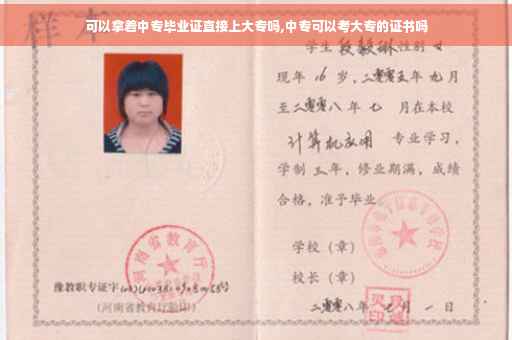 可以拿着中专毕业证直接上大专吗,中专可以考大专的证书吗
样本
学生 段毅琳 性别 女
现年 16 岁,二零零五年 九月
至二零零八年 七 月在本校
计算机应用 专业学习,
学制 三 年,修业期满,成绩
合格,准予毕业
学校(章)
校长(章)
二零零八年 七 月 一 日
河南省教育厅
豫教职专证字
(河南省教育厅验印)